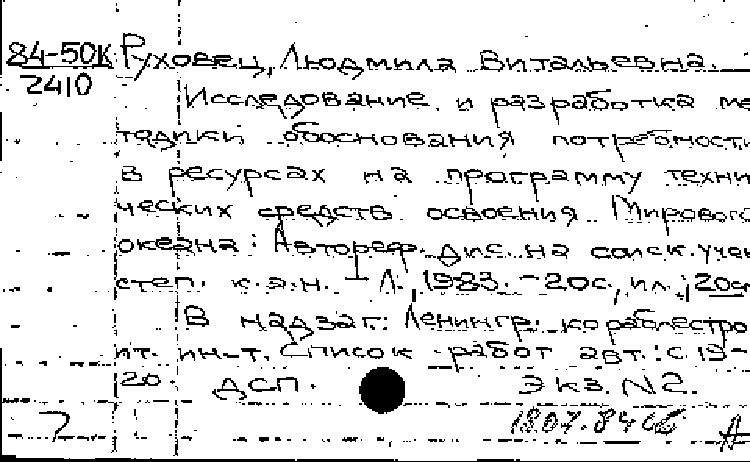 84-50К Руховец, Людмила Витальевна.
2410
Исследование и разработка ме
тодики обоснования потребности
в ресурсах на программу техни
ческих средств освоения Мирового
океана: Автореф. дис. на соиск. учен
степ. к.э.н. - Л., 1983. - 20с., ил.; 20см
В надзаг: Ленингр. кораблестро
ит. ин-т. Список работ авт.: с.19-
20. ДСП. Экз. №2.
18.07.84